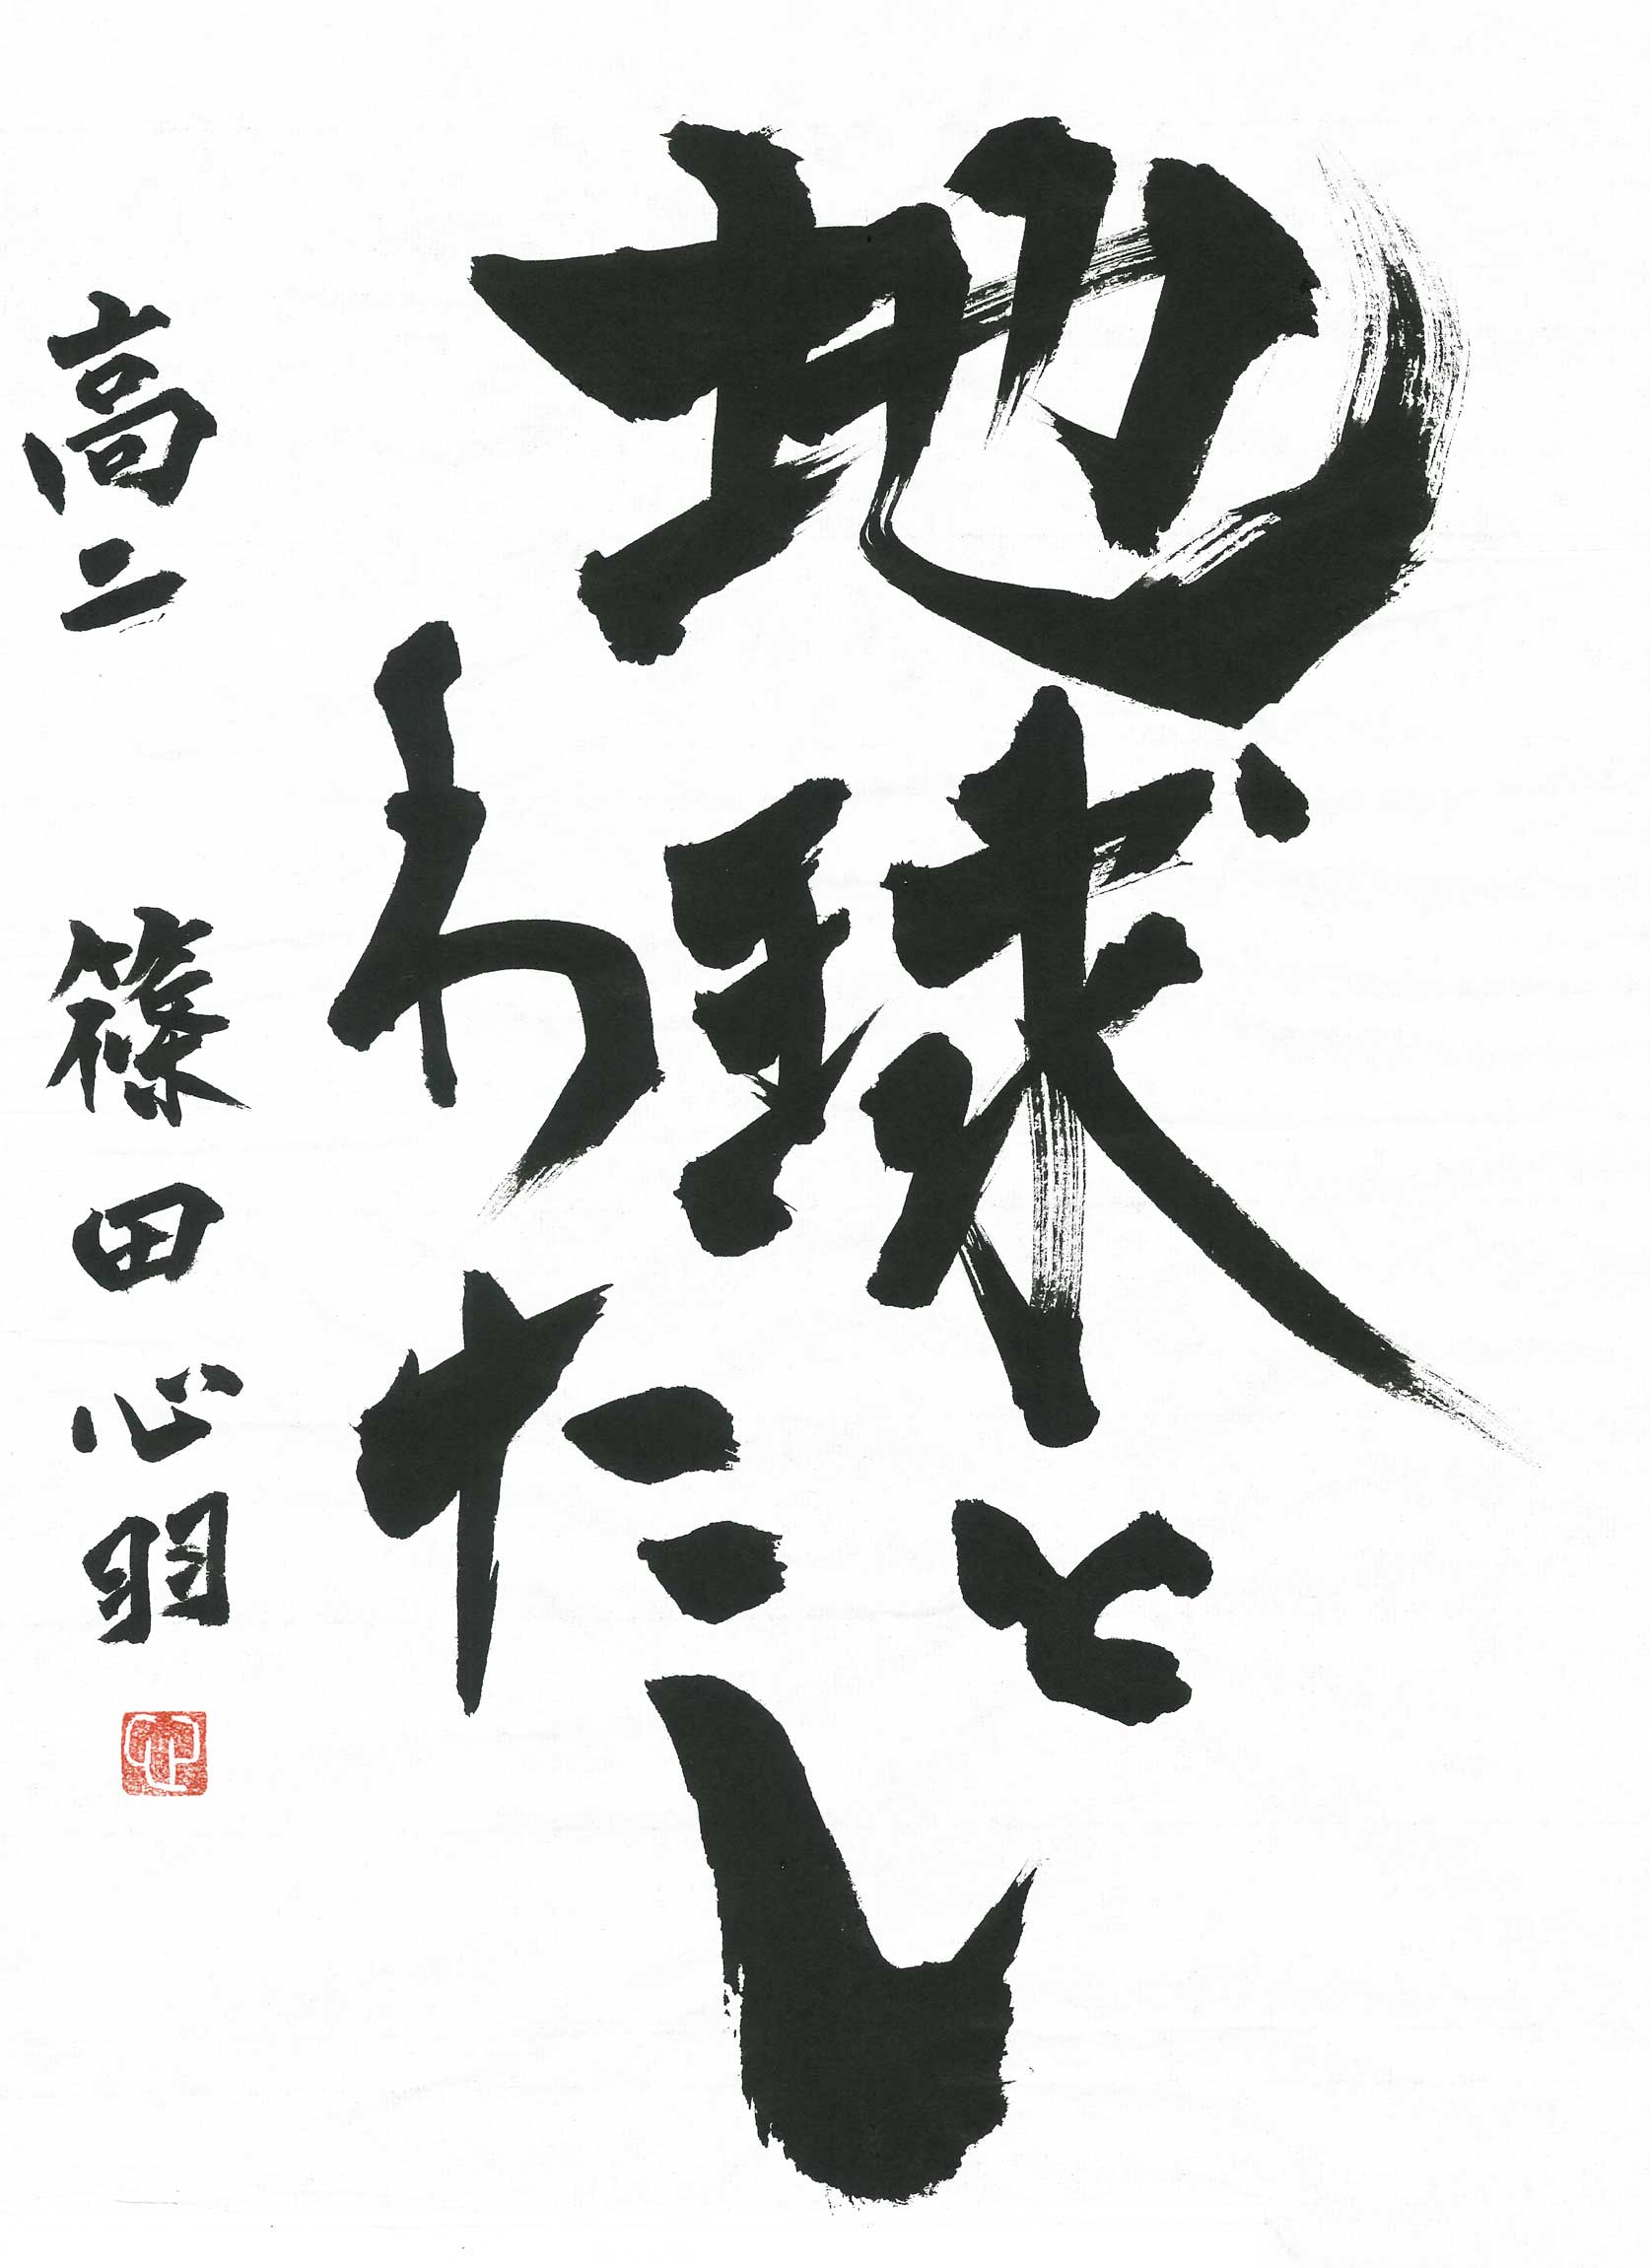 地球と
わたし
高二 篠田心羽